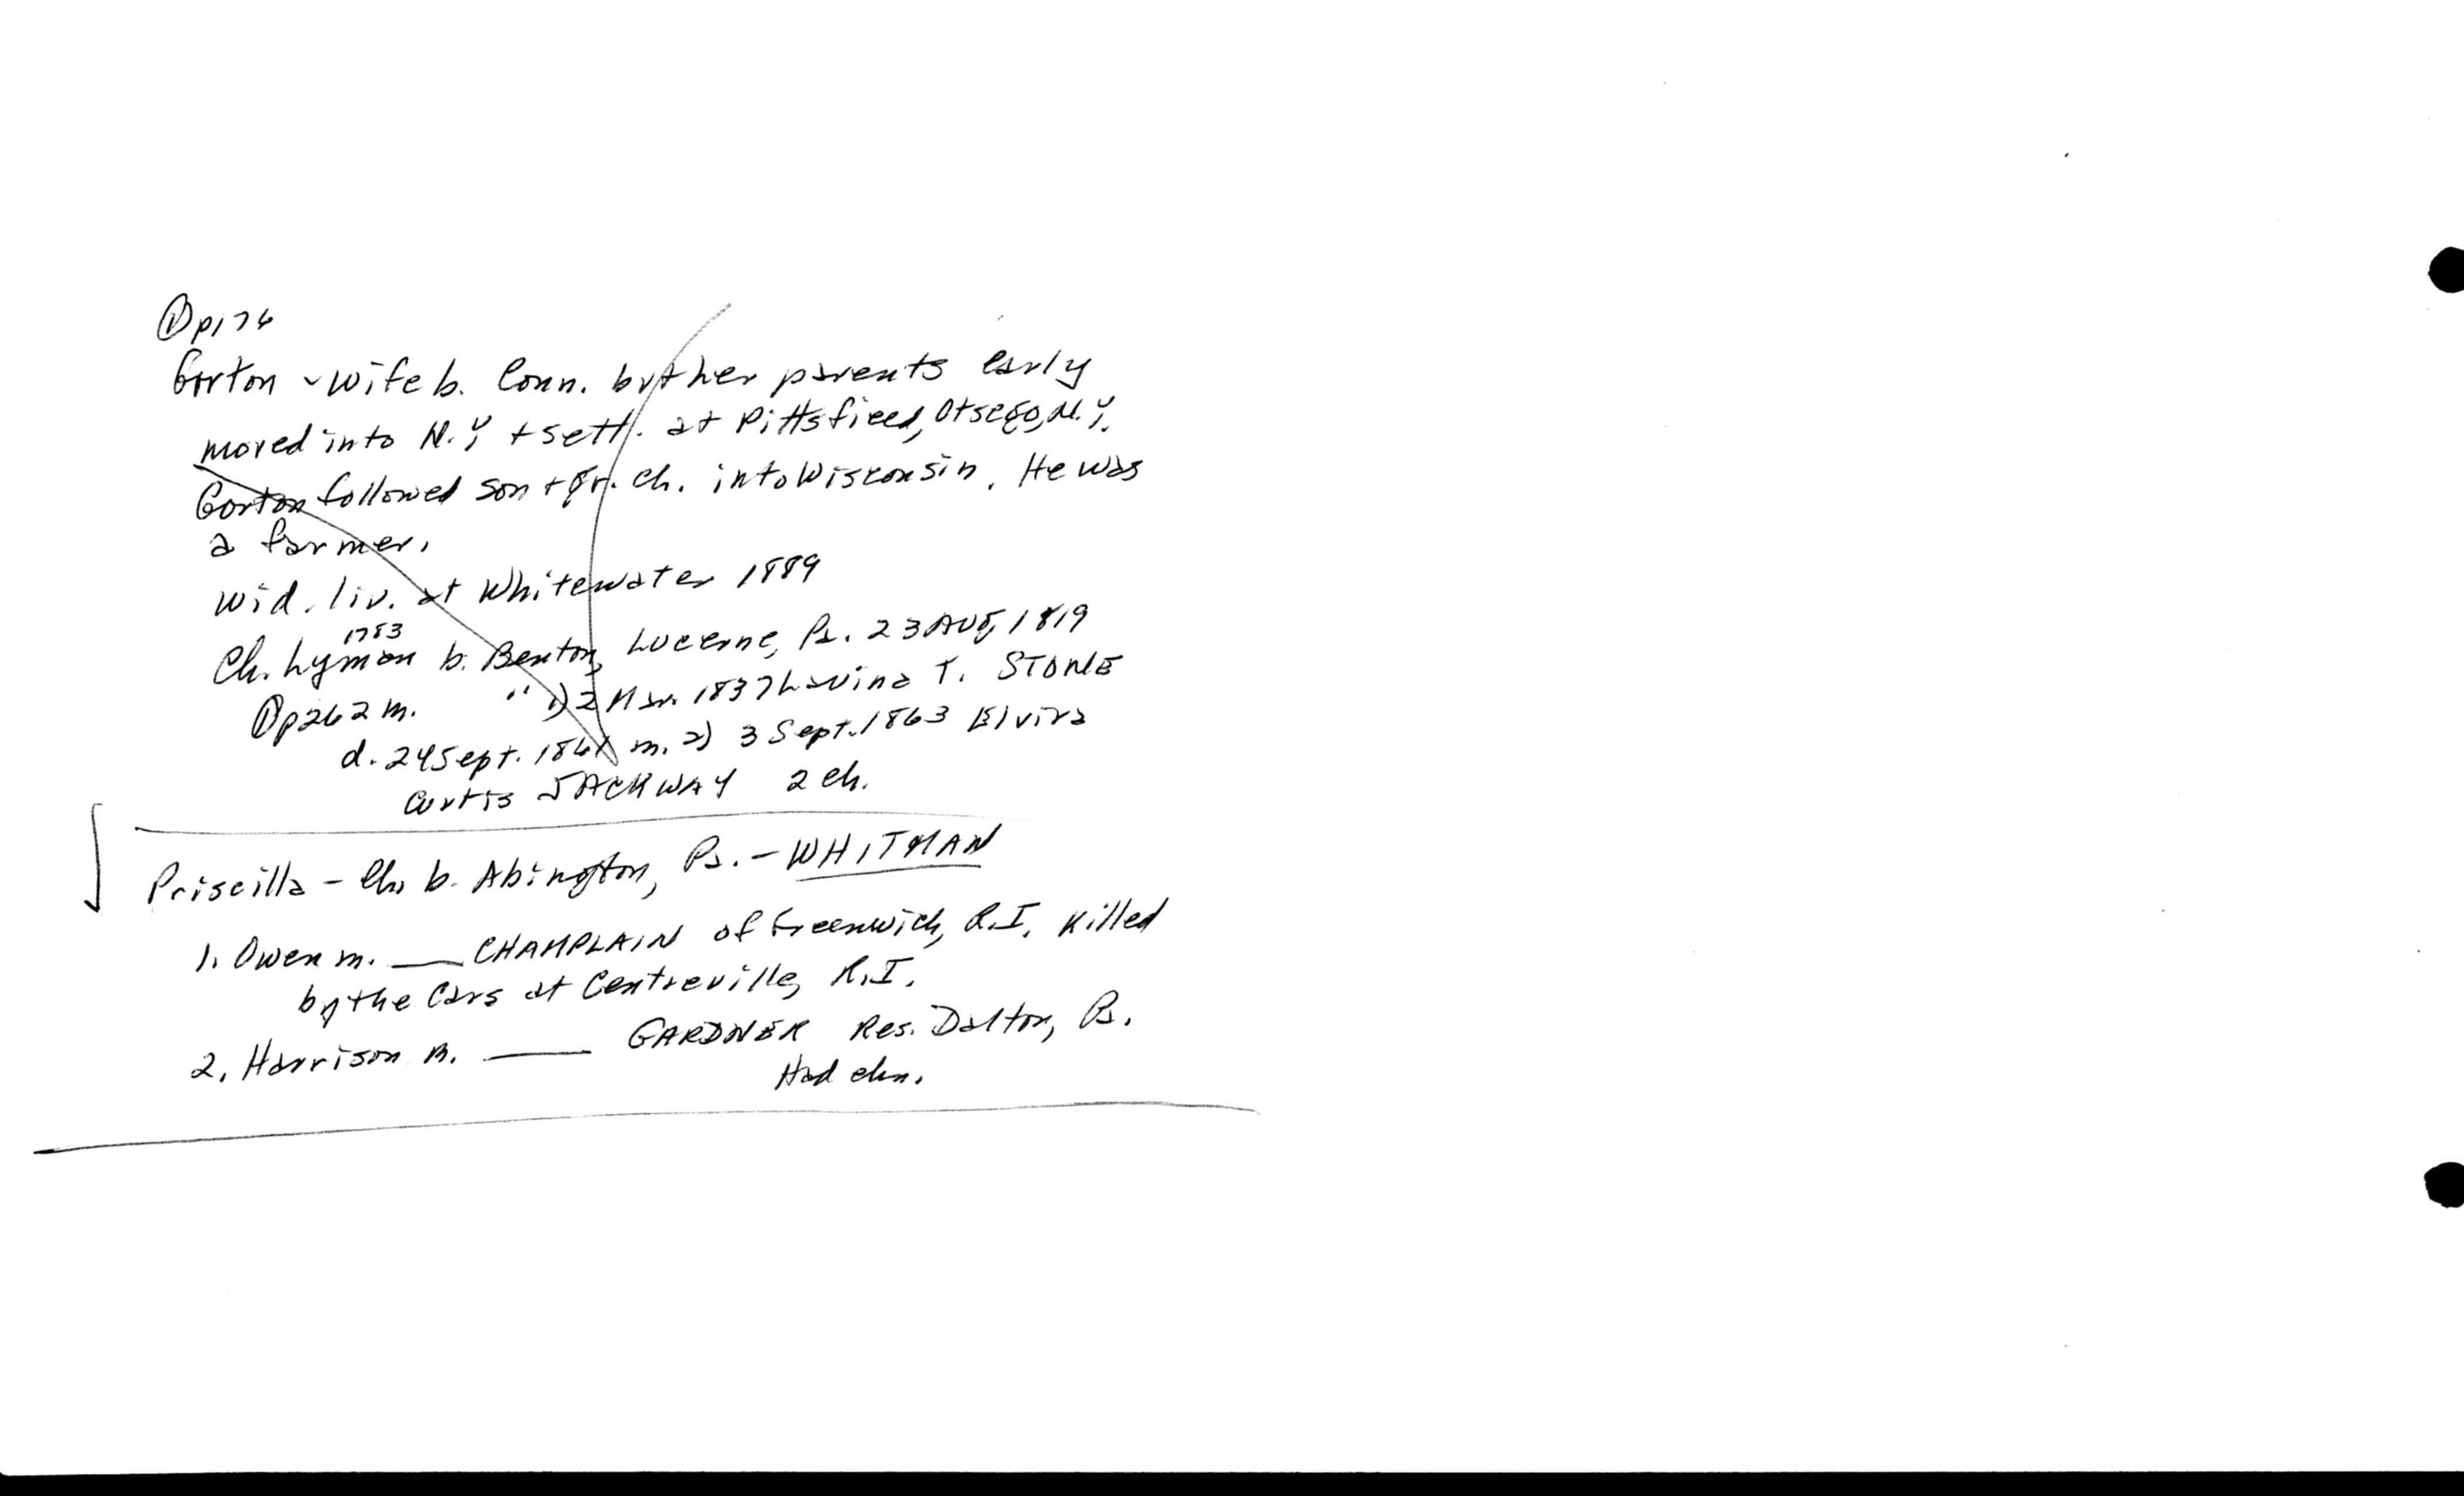 ① p176
Gorton - Wife b. Conn. but her parents early
moved into N.Y. + sett. at Pittsfield, Otsego, N.Y.
Gorton followed son + gr. ch. into Wisconsin. He was
a farmer.
Wid. liv. at Whitewater 1889
1783
Ch. Lyman b. Benton, Lucerne, Pa. 23 Aug 1819
① p262 m. " 1) 2 Mar. 1837 Lavina T. STONE
d. 24 Sept. 1861 m. 2) 3 Sept. 1863 Elvira
Curtis JACKWAY 2 ch.
Priscilla - Ch. b. Abington, Pa. - WHITMAN
1. Owen m. ___ CHAMPLAIN of Greenwich, R.I. Killed
by the Cars at Centreville, R.I.
2. Harrison m. ___ GARDNER Res. Dalton, Pa.
Had chn.